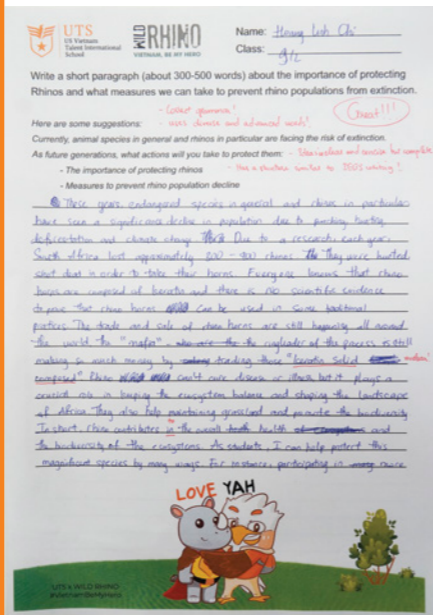 UTS
US Vietnam
Talent International
School
WILD
RHINO
VIETNAM, BE MY HERO
Name: Hoang Linh Chi
Class: 9/2
Write a short paragraph (about 300-500 words) about the importance of protecting
Rhinos and what measures we can take to prevent rhino populations from extinction.
Great!!!
- Correct grammar!
Here are some suggestions: - uses diverse and advanced words!
Currently, animal species in general and rhinos in particular are facing the risk of extinction.
As future generations, what actions will you take to protect them: - Ideas and concise but complete
- The importance of protecting rhinos - Has a structure similar to IELTS writing!
- Measures to prevent rhino population decline
These years, endangered species in general and rhinos in particular
have seen a significance decline in population due to poaching, hunting,
deforestation and climate change. Due to a research each year,
South Africa lost approximately 300 - 900 rhinos. They were hunted,
shot dead in order to take their horns. Everyone knows that rhino
horns are composed of keratin and there is no scientific evidence
to prove that rhino horns can be used in some traditional
The trade and sale of rhino horns are still happening all around
the world. The "mafia" - the ringleader of the process is still
making so much money by trading those "keratin solid
composed". Rhino can't cure disease or illness but it plays a
crucial role in keeping the ecosystem balance and shaping the landscape
of Africa. They also help maintaining grassland and promote the biodiversity.
In short, rhino contributes to the overall health of and
the biodiversity of the ecosystems. As students, I can help protect this
magnificent species by many ways. For instance, participating in more
LOVE YAH
UTS & WILD RHINO
#VietnamBeMyHero